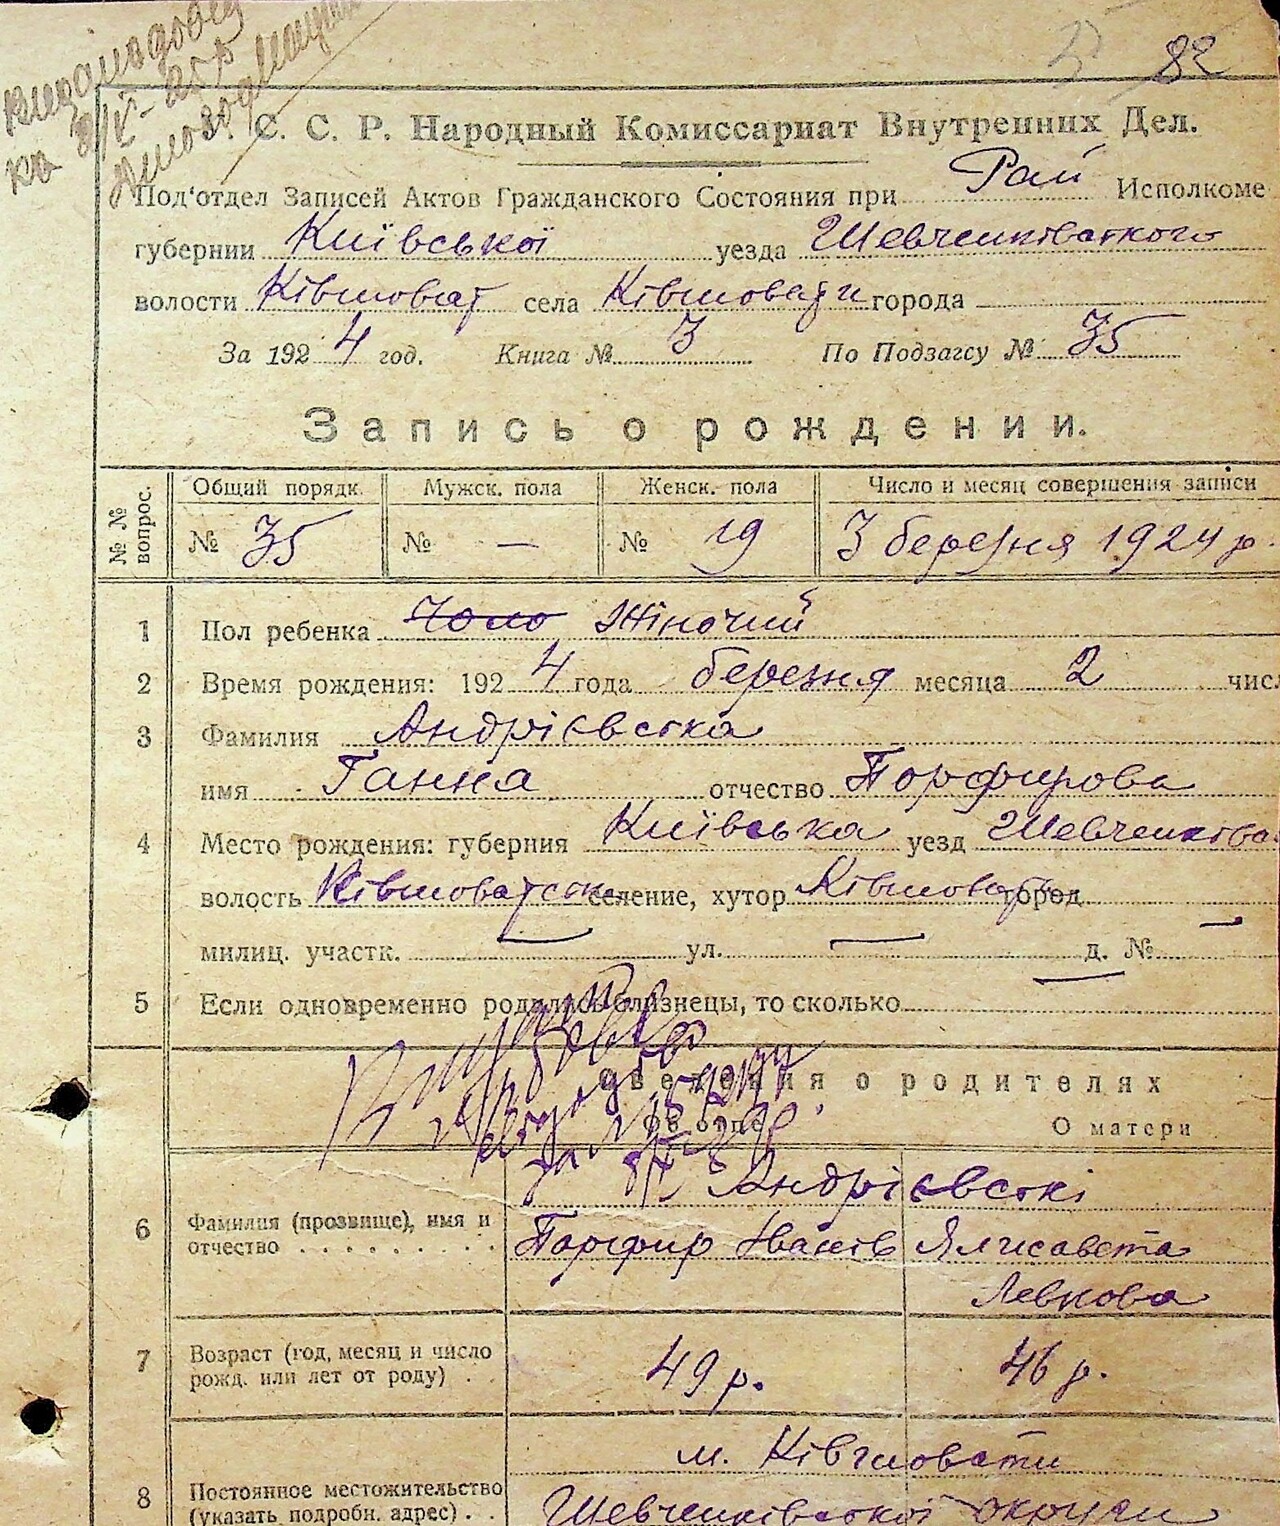 82
С. С. Р. Народный Комиссариат Внутренних Дел.
Под'отдел Записей Актов Гражданского Состояния при Рай Исполкоме
губернии Київської уезда Шевченківського
волости Ківшоват села Ківшовати города
За 1924 год. Книга № 3 По Подзагсу № 35
Запись о рождении.
№ № вопрос.
Общий порядк. Мужск. пола Женск. пола Число и месяц совершения записи
№ 35 № — № 19 3 березня 1924 р.
1 Пол ребенка Жіночий
2 Время рождения: 1924 года березня месяца 2 числ
3 Фамилия Андрієвська
имя Ганна отчество Порфирова
4 Место рождения: губерния Київська уезд Шевченківс
волость Ківшоватськ селение, хутор Ківшовати город
милиц. участк. — ул. — д. № —
5 Если одновременно родились близнецы, то сколько —
Сведения о родителях
Об отце О матери
Андрієвські
6 Фамилия (прозвище), имя и отчество . . . . . . . . . Порфир Іванів Ялисавета
Левкова
7 Возраст (год, месяц и число
рожд. или лет от роду) . . 49 р. 46 р.
м. Ківшовати
8 Постоянное местожительство
(указать подробн. адрес) . . Шевченківської округи